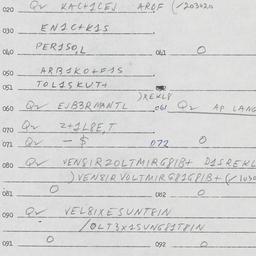 020 Qv KAC+1CEJ AROF (/203020
030 EN1C+K1S
040 PER1SO,L 041 O
050 ARB1KO+F1S
051 TOL1SKUT+
)XEKL8
060 Qv EJB3RMANTL 061 Qv AP LANG
070 Qv Z+1L8E,T
071 Qv - $ 072 O
080 VEN8IR2OLTMIRG8IB+ D1SREKL
)VEN8IRVOLTMIRG81G8IB+(/
081 O 082 O
090 Qv VEL8IXESUNT8IN
/OLT3X1SUNG81T8IN
091 O 092 O